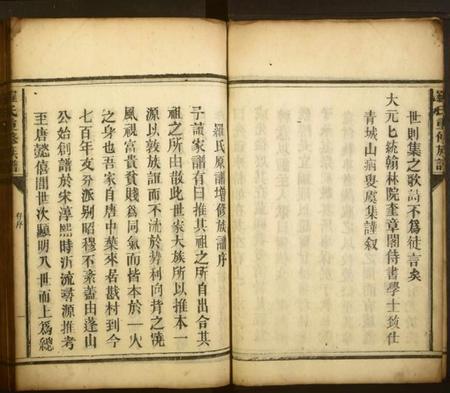 世則集之歌詩不爲徒言矣
大元七統翰林院奎章閣侍書學士致仕
青城山病叟虞集謹叙
羅氏原譜增修族譜序
予讀家譜有曰推其祖之所自出合其
祖之所由散此世家大族所以推本一
源以敦族誼而不流於勢利向背之澆
風視富貴貧賤爲同氣而偕本於一人
之身也吾家自唐中葉來居敖村到今
七百年支分派別昭穆不紊葢由逢山
公始創譜於宋淳熙時沂流尋源推考
至唐懿僖間世次顯明八世而上爲綫